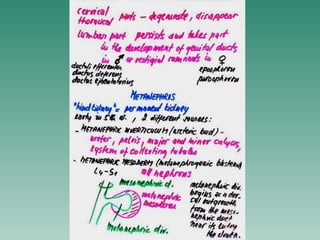 cervical
thoracal parts - degenerate, disappear
lumban part persists and takes part
in the development of genital ducts
in ♂ or vestigial remnants in ♀
ductuli efferentes
ductus deferens
ductus ejaculatorius
epoophoron
paroophoron
METANEPHROS
"hind kidney" = permanent kidney
early in 5th w., 2 different sources:
- METANEPHRIC DIVERTICULUM (ureteric bud) -
ureter, pelvis, major and minor calyces,
system of collecting tubules
- METANEPHRIC MESODERM (metanephrogenic blastema)
L4-S1 all nephrons
mesonephric d.
metanephric
mesoderm
metanephric div.
metanephric div.
begins as a dor-
sal outgrowth
from the meso-
nephric duct
near its entry
the cloaca.